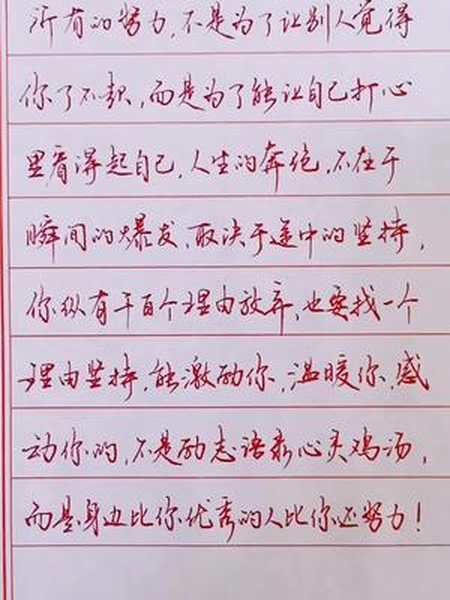 所有的努力,不是为了让别人觉得
你了不起,而是为了能让自己打心
里看得起自己,人生的奔跑,不在于
瞬间的爆发,取决于途中的坚持,
你纵有千百个理由放弃,也要找一个
理由坚持,能激励你,温暖你,感
动你的,不是励志语录心灵鸡汤,
而是身边比你优秀的人比你还努力!